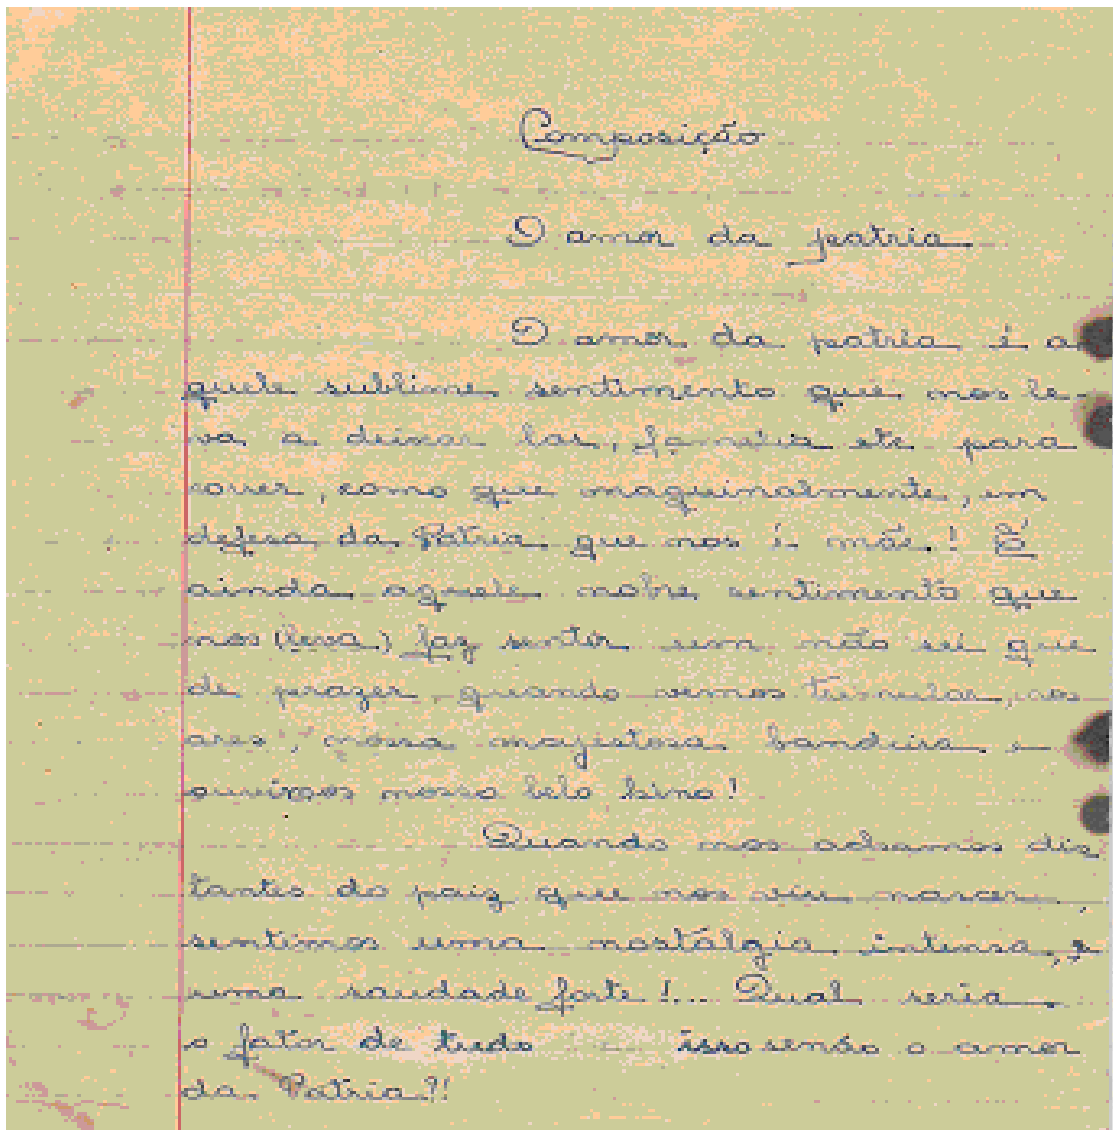 Composição
O amor da patria
O amor da patria é a
quele sublime sentimento que nos le-
va a deixar lar, familia etc para
correr, como que maquinalmente, em
defesa da Patria que nos é mãe! É
ainda aquele nobre sentimento que
nos (leva) faz sentir um não sei que
de prazer, quando vemos tremular, nos
ares, nossa magestosa bandeira e
ouvimos nosso belo hino!
Quando nos achamos dis
tantes do paiz que nos viu nascer,
sentimos uma nostálgia intensa, e
uma saudade forte!... Qual seria
o fator de tudo isso senão o amor
da Patria?!